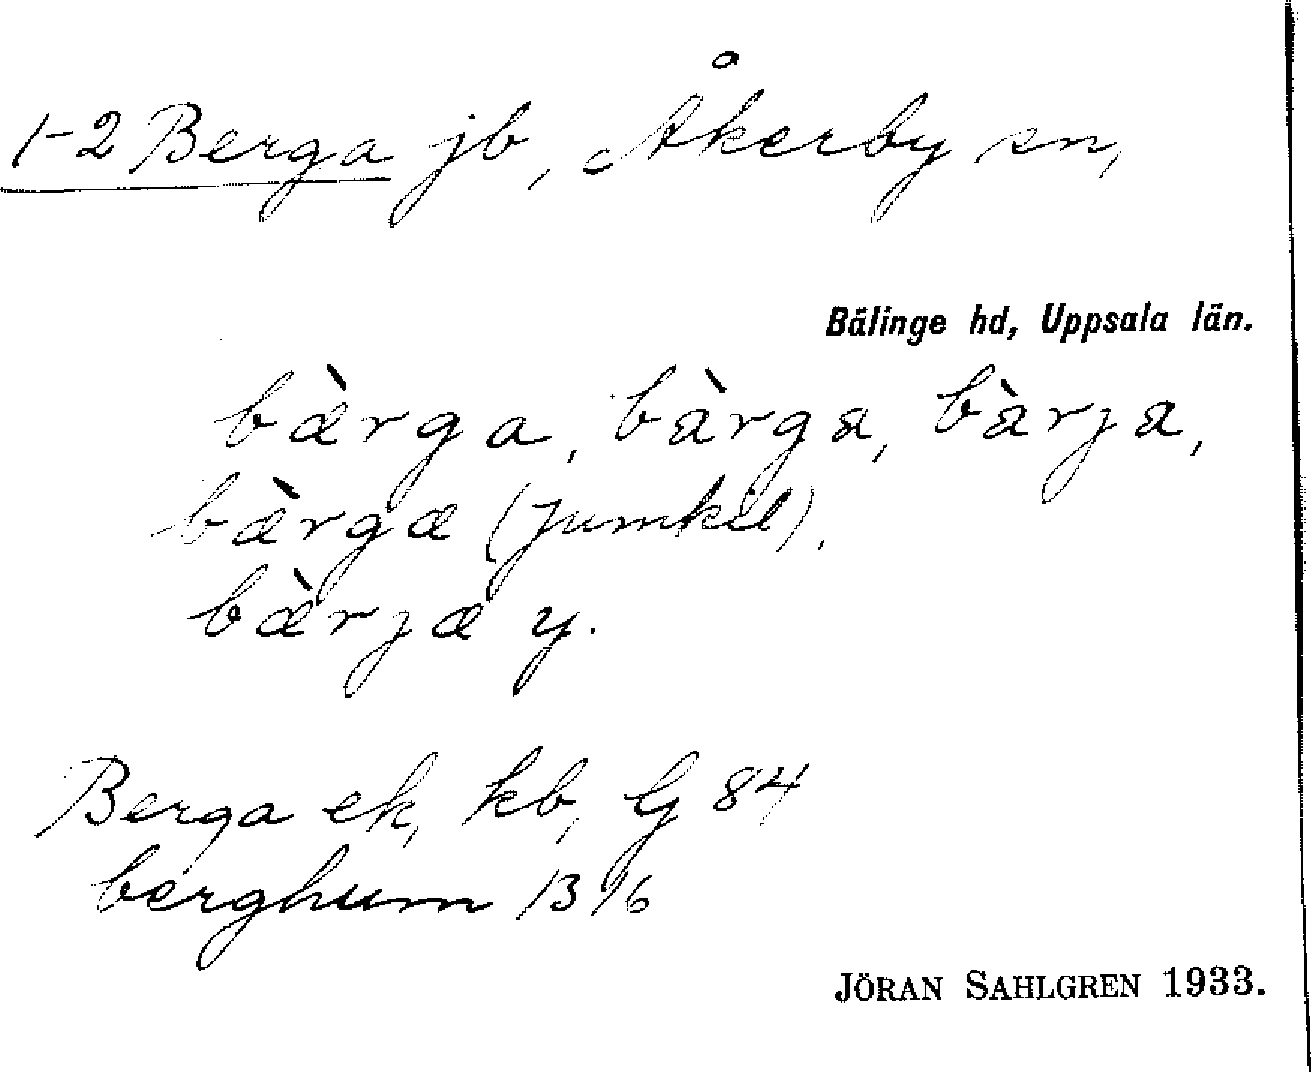 1-2 Berga jb, Åkerby sn,
Bälinge hd, Uppsala län.
bæ̀rga, bàrga, bàrja,
bæ̀rgæ (Jumkil),
bæ̀rjæ y.
Berga ek, kb, G 84
berghum 1316
JÖRAN SAHLGREN 1933.